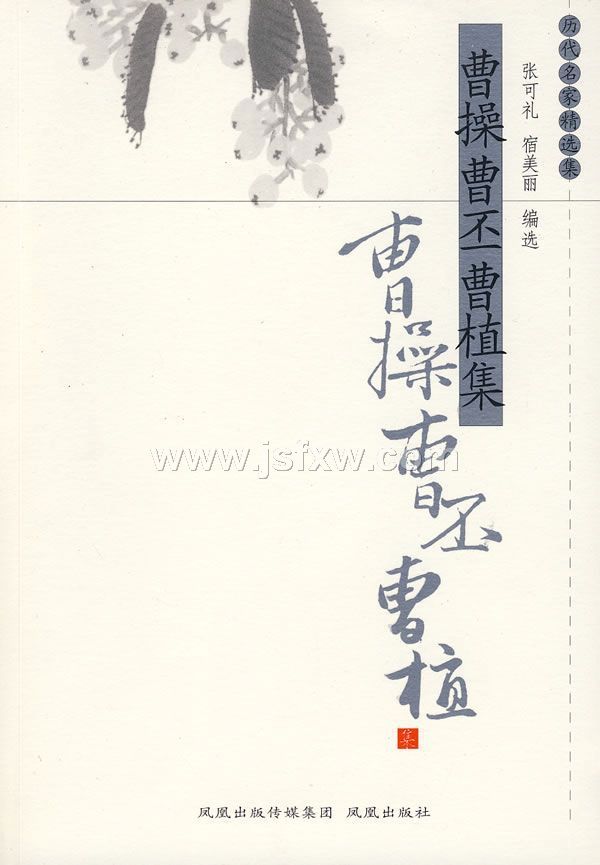 历代名家精选集
张可礼 宿美丽 编选
曹操曹丕曹植集
曹操
曹丕
曹植
集
www.jsfxw.com
凤凰出版传媒集团 凤凰出版社